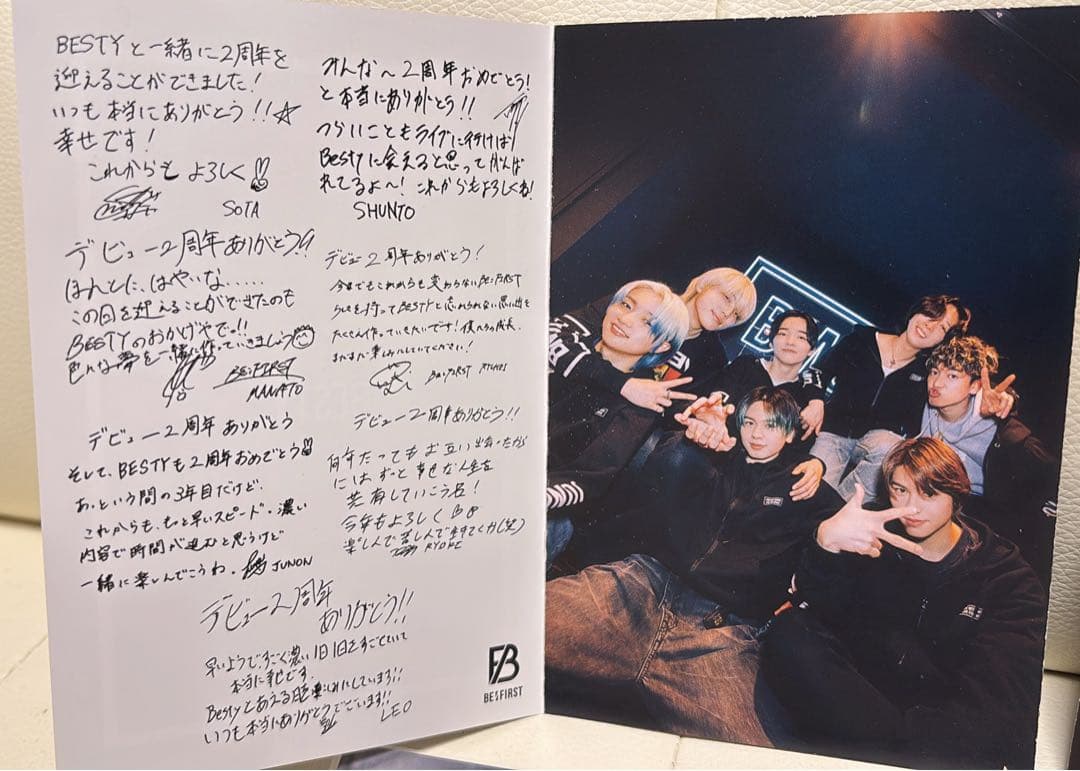 BESTYと一緒に2周年を
迎えることができました!
いつも本当にありがとう!!☆
幸せです!
これからも よろしく
SOTA
みんな〜2周年おめでとう!
と本当にありがとう!!
つらいこともライブに行けば
Bestyに会えると思ってがんば
れてるよ〜! これからもよろしくね!
SHUNTO
デビュー2周年ありがとう!!
ほんとに、はやいな.....
この日を迎えることができたのも
BESTYのおかげやで!!
色んな夢を一緒に作っていきましょう
BE:FIRST
MANATO
デビュー2周年ありがとう!
今までもこれからも変わらないBE:FIRST
らしさを持ってBESTYと忘れられない思い出を
たくさん作っていきたいです!僕たちの成長、
まだまだ楽しみにしていてください!
BE:FIRST RYUHEI
デビュー2周年 ありがとう
そして、BESTYも2周年おめでとう
あっという間の3年目だけど、
これからも、もっと早いスピード、濃い
内容で時間が進むと思うけど
一緒に楽しんでこうね。
JUNON
デビュー2周年ありがとう!!
何年たってもお互い出会ったから
には、ずっと幸せな人生を
共有していこう名!
今年もよろしく
楽しんで苦しんで
RYOKI
デビュー2周年
ありがとう!!
早いようですごく濃い1日1日をすごせていて
本当に幸せです。
Bestyとあえる日を楽しみにしています!!
いつも本当にありがとうございます!!
LEO
BE:FIRST